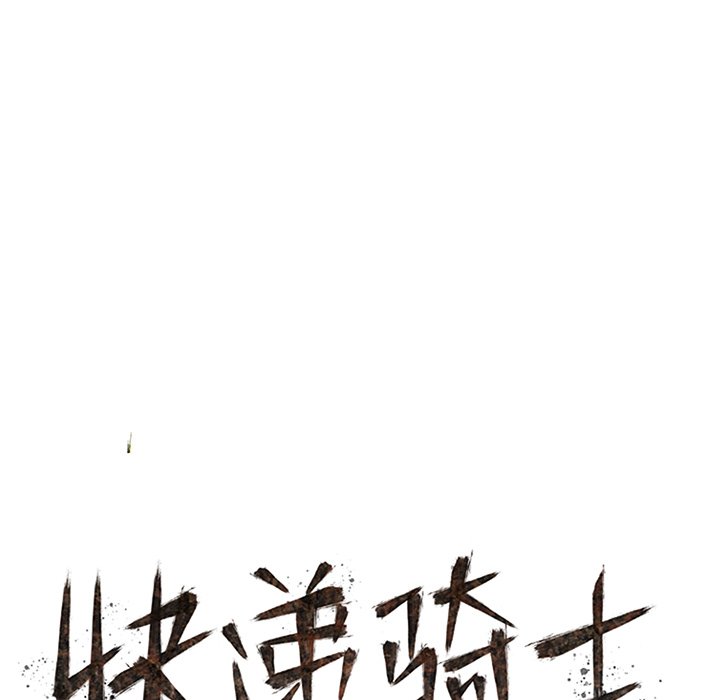 快递骑士